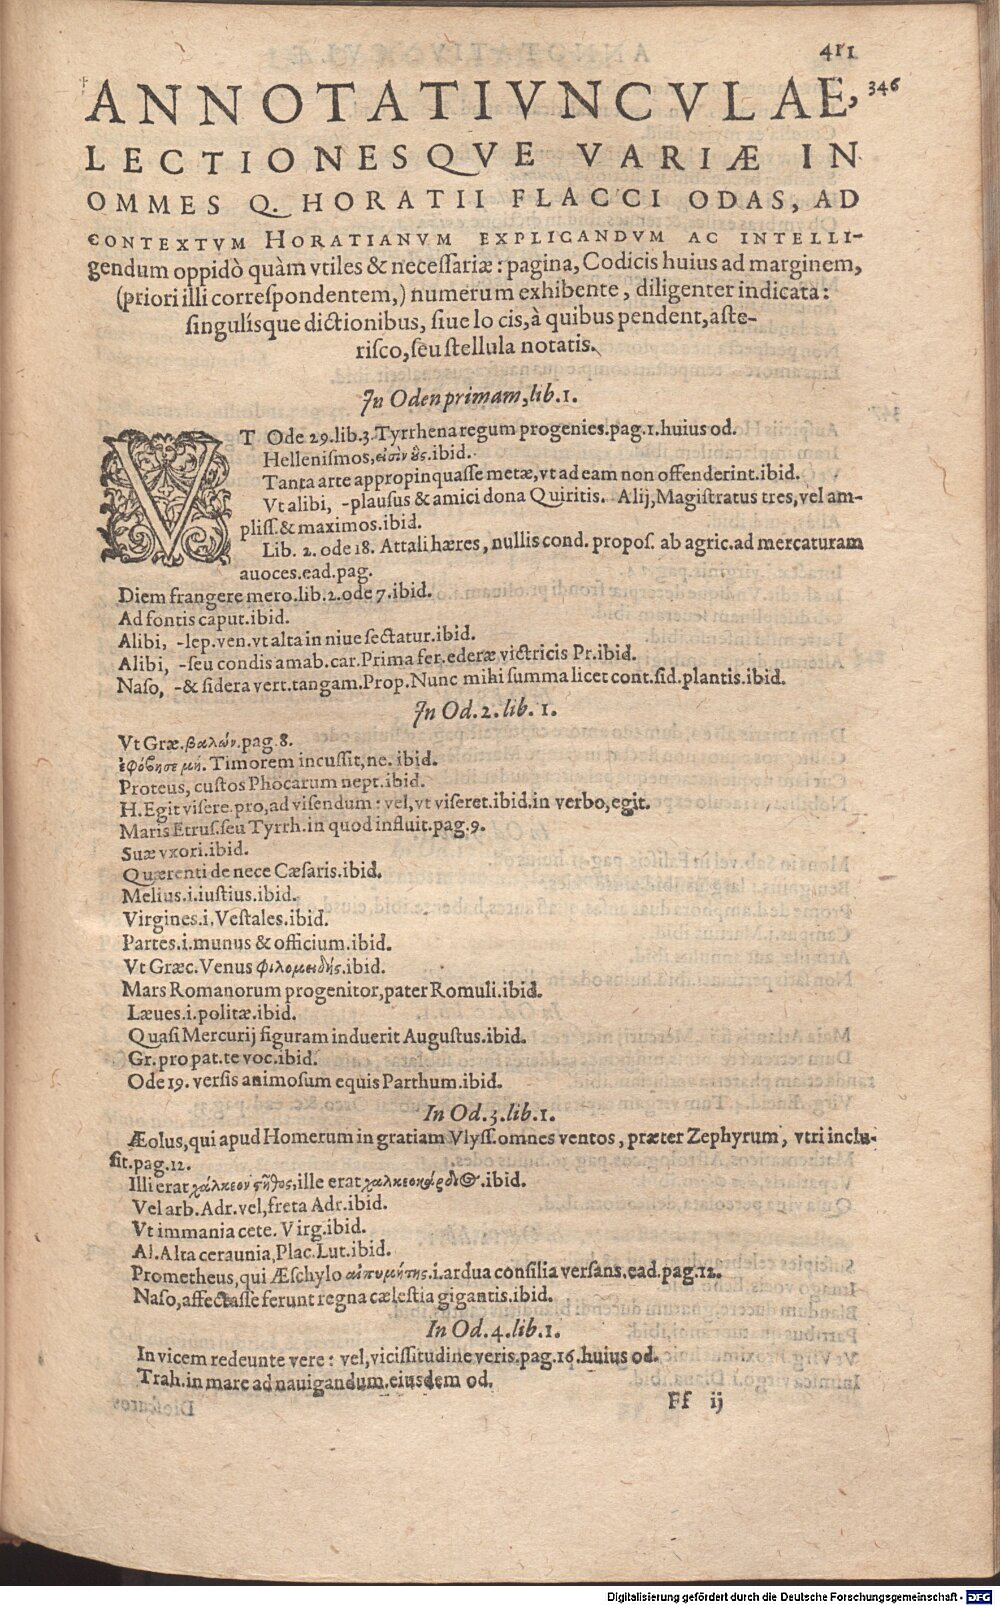 411
ANNOTATIVNCVLAE, 346
LECTIONESQVE VARIÆ IN
OMMES Q. HORATII FLACCI ODAS, AD
CONTEXTVM HORATIANVM EXPLICANDVM AC INTELLI-
gendum oppidò quàm vtiles & necessariæ: pagina, Codicis huius ad marginem,
(priori illi correspondentem,) numerum exhibente, diligenter indicata:
singulísque dictionibus, siue lo cis, à quibus pendent, aste-
risco, seu stellula notatis.
In Oden primam, lib. 1.
VT Ode 29. lib. 3. Tyrrhena regum progenies. pag. 1. huius od.
Hellenismos, ibid.
Tanta arte appropinquasse metæ, vt ad eam non offenderint. ibid.
Vt alibi, -plausus & amici dona Quiritis. Alij, Magistratus tres, vel am-
pliss. & maximos. ibid.
Lib. 2. ode 18. Attali hæres, nullis cond. propos. ab agric. ad mercaturam
auoces. ead. pag.
Diem frangere mero. lib. 2. ode 7. ibid.
Ad fontis caput. ibid.
Alibi, -lep. ven. vt alta in niue sectatur. ibid.
Alibi, -seu condis amab. car. Prima fer. ederæ victricis Pr. ibid.
Naso, -& sidera vert. tangam. Prop. Nunc mihi summa licet cont. sid. plantis. ibid.
In Od. 2. lib. 1.
Vt Græ. βαλών. pag. 8.
ἐφόβησε μή. Timorem incussit, ne. ibid.
Proteus, custos Phocarum nept. ibid.
H. Egit visere. pro, ad visendum: vel, vt viseret. ibid. in verbo, egit.
Maris Etrus. seu Tyrrh. in quod influit. pag. 9.
Suæ vxori. ibid.
Quærenti de nece Cæsaris. ibid.
Melius. i. iustius. ibid.
Virgines. i. Vestales. ibid.
Partes. i. munus & officium. ibid.
Vt Græc. Venus φιλομειδής. ibid.
Mars Romanorum progenitor, pater Romuli. ibid.
Læues. i. politæ. ibid.
Quasi Mercurij figuram induerit Augustus. ibid.
Gr. pro pat. te voc. ibid.
Ode 19. versis animosum equis Parthum. ibid.
In Od. 3. lib. 1.
Æolus, qui apud Homerum in gratiam Vlyss. omnes ventos, præter Zephyrum, vtri inclu-
sit. pag. 12.
Illi erat χάλκεον στῆθος, ille erat χαλκεοκάρδιος. ibid.
Vel arb. Adr. vel, freta Adr. ibid.
Vt immania cete. Virg. ibid.
Al. Alta ceraunia, Plac. Lut. ibid.
Prometheus, qui Æschylo αἰπυμήτης. i. ardua consilia versans. ead. pag. 12.
Naso, affectasse ferunt regna cælestia gigantis. ibid.
In Od. 4. lib. 1.
In vicem redeunte vere: vel, vicissitudine veris. pag. 16. huius od.
Trah. in mare ad nauigandum. eiusdem od.
Ff ij
Digitalisierung gefördert durch die Deutsche Forschungsgemeinschaft - DFG